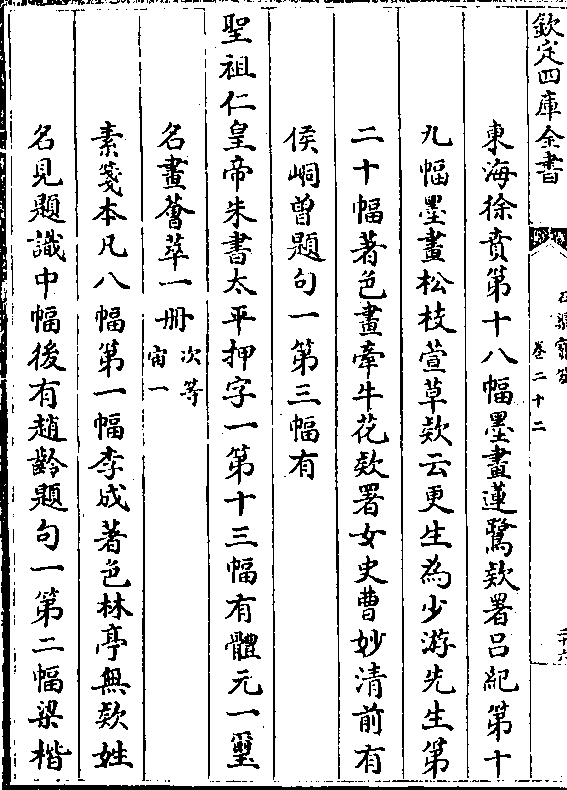 欽定四庫全書
卷二十二
東海徐賁第十八幅墨畫蓮鷺欵署吕紀第十
九幅墨畫松枝萱草欵云更生為少游先生第
二十幅著色畫牽牛花欵署女史曹妙清前有
侯峒曾題句一第三幅有
聖祖仁皇帝朱書太平押字一第十三幅有體元一璽
名畫薈萃一册次等宙一
素箋本凡八幅第一幅李成著色林亭無欵姓
名見題識中幅後有趙齡題句一第二幅梁楷